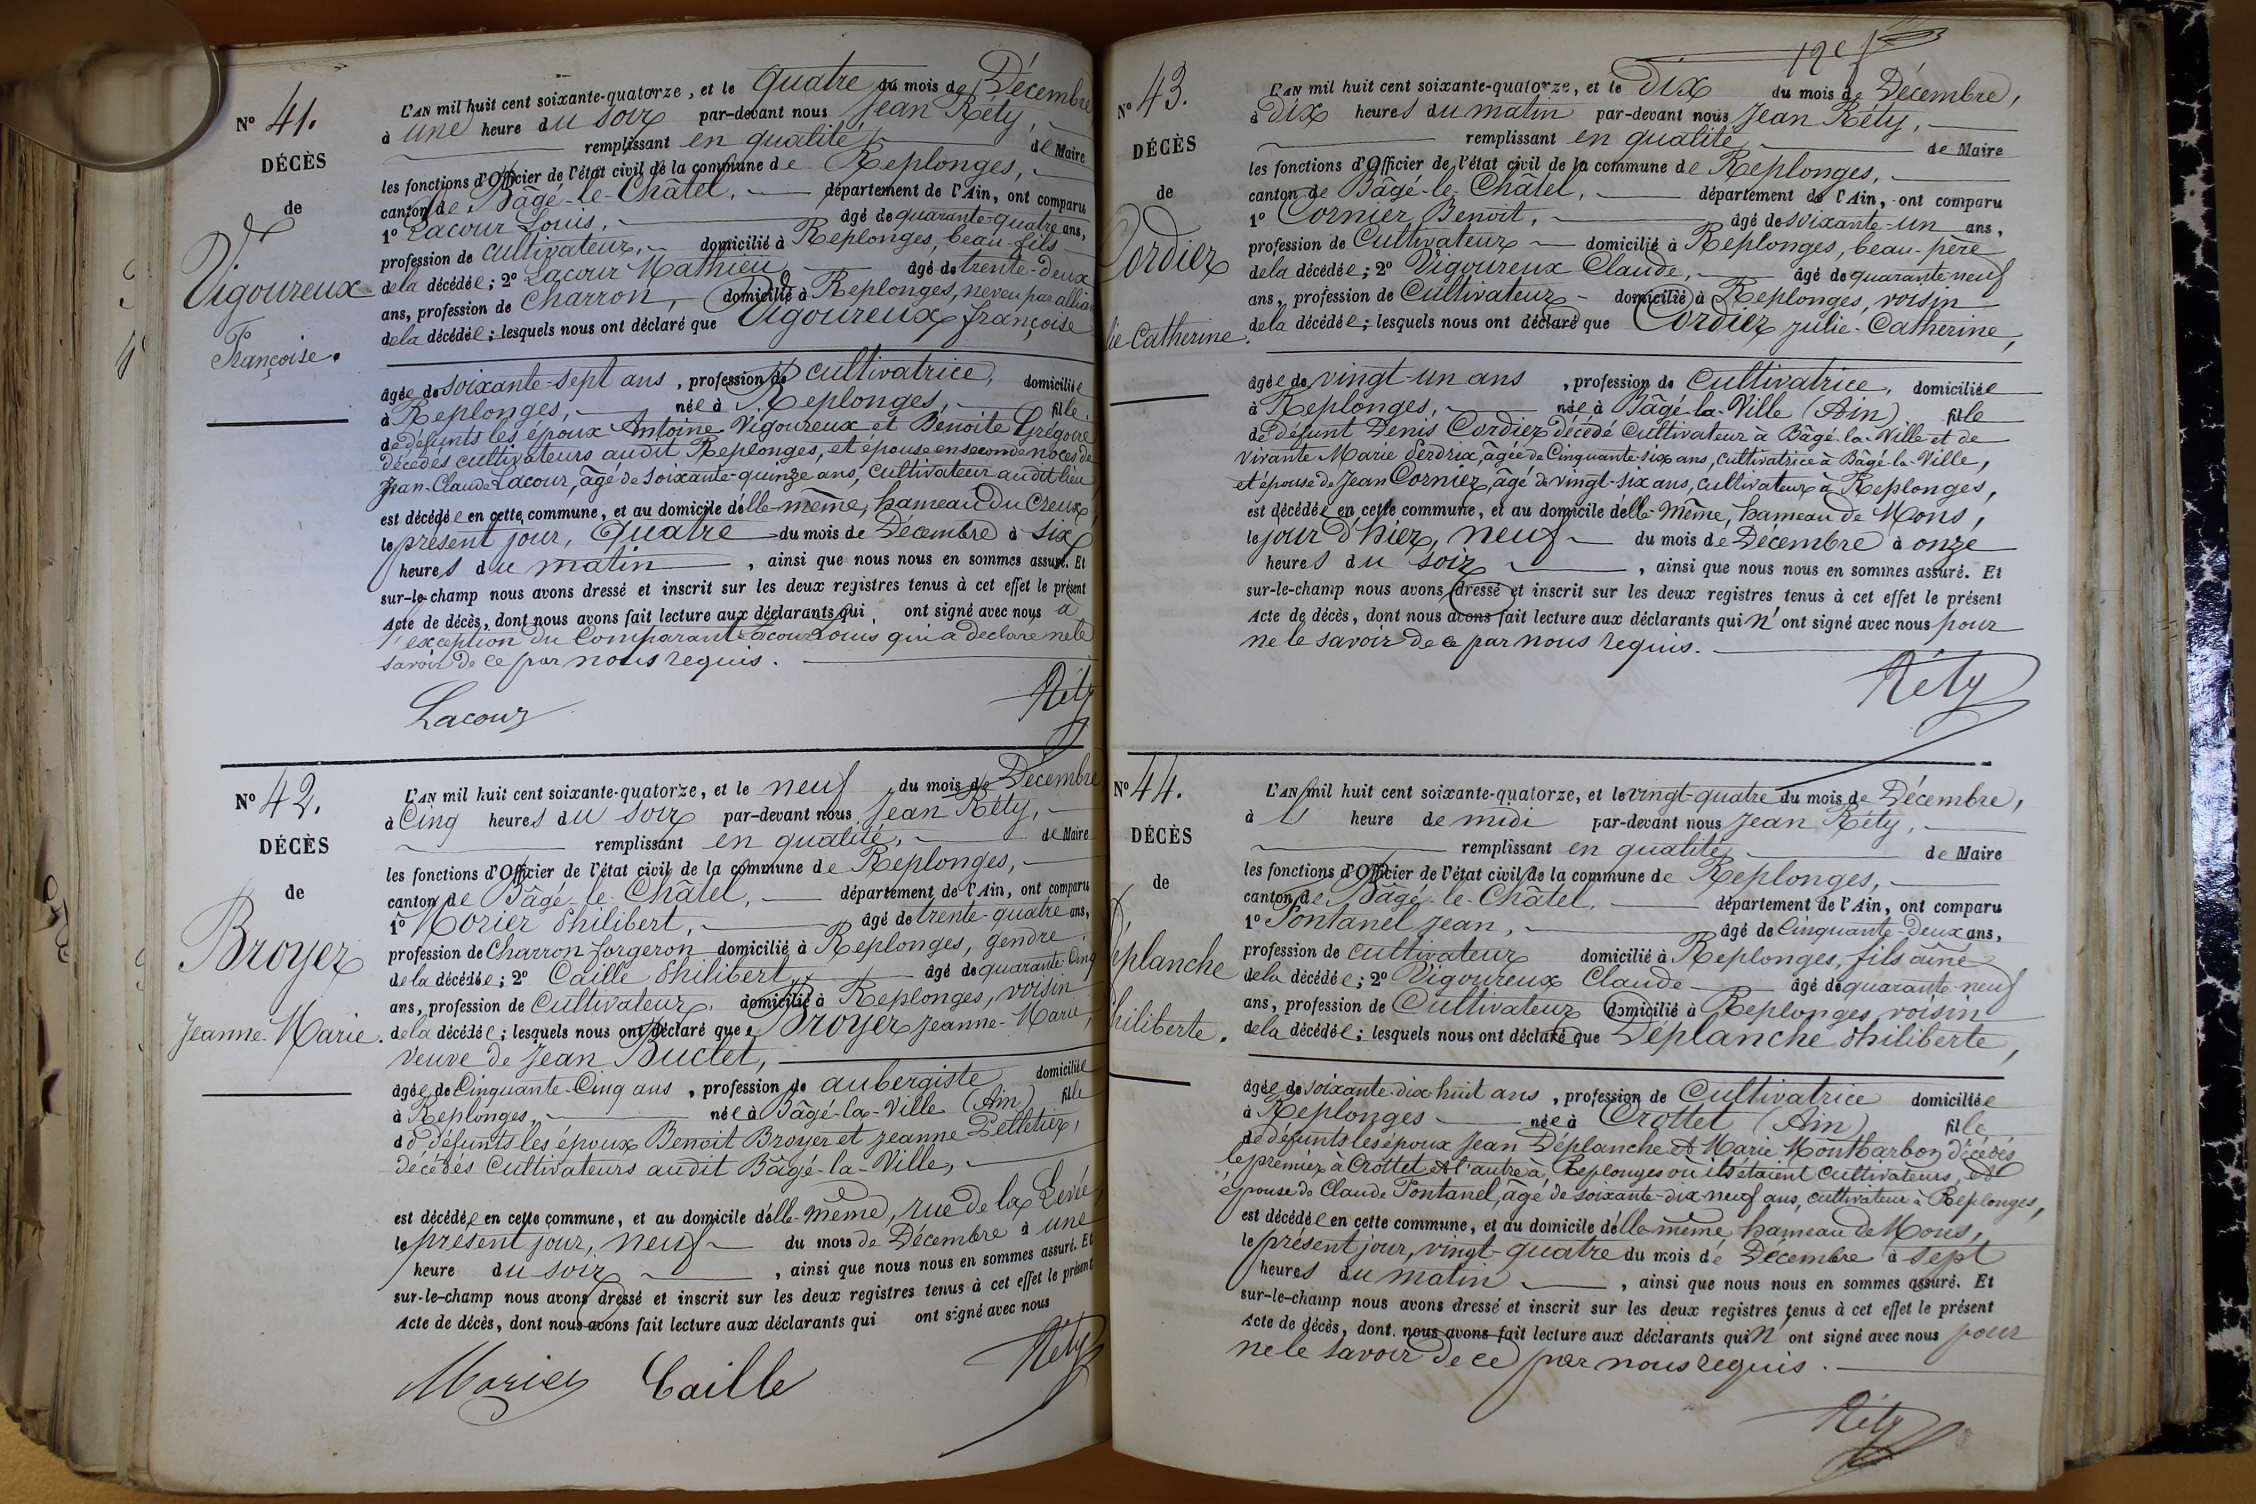 N° 41.
DÉCÈS
de
Vigoureux
Françoise.
L'AN mil huit cent soixante-quatorze, et le quatre du mois de Décembre
à une heure du soir par-devant nous Jean Réty,
remplissant en qualité de Maire
les fonctions d'Officier de l'état civil de la commune de Replonges,
canton de Bâgé-le-Châtel, département de l'Ain, ont comparu
1° Lacour Louis, âgé de quarante-quatre ans,
profession de cultivateur, domicilié à Replonges, beau-fils
de la décédée; 2° Lacour Mathieu âgé de trente-deux
ans, profession de Charron, domicilié à Replonges, neveu par allia
de la décédée; lesquels nous ont déclaré que Vigoureux françoise
âgée de soixante-sept ans, profession de cultivatrice, domiciliée
à Replonges, née à Replonges, fille
de défunts les époux Antoine Vigoureux et Benoite Grégoire
décédés cultivateurs audit Replonges, et épouse en seconde noces de
Jean-Claude Lacour, âgé de soixante-quinze ans, cultivateur audit lieu,
est décédée en cette commune, et au domicile d'elle-même, hameau du Creux,
le présent jour, quatre du mois de Décembre à six
heures du matin, ainsi que nous nous en sommes assuré. Et
sur-le-champ nous avons dressé et inscrit sur les deux registres tenus à cet effet le présent
Acte de décès, dont nous avons fait lecture aux déclarants qui ont signé avec nous a
l'exception du Comparant Lacour Louis qui a déclaré ne le
savoir de ce par nous requis.
Lacour Réty
N° 42.
DÉCÈS
de
Broyer
Jeanne-Marie.
L'AN mil huit cent soixante-quatorze, et le neuf du mois de Décembre
à Cinq heures du soir par-devant nous Jean Réty,
remplissant en qualité, de Maire
les fonctions d'Officier de l'état civil de la commune de Replonges,
canton de Bâgé-le-Châtel, département de l'Ain, ont comparu
1° Morier Philibert, âgé de trente-quatre ans,
profession de Charron forgeron domicilié à Replonges, gendre
de la décédée; 2° Caille Philibert âgé de quarante-Cinq
ans, profession de Cultivateur, domicilié à Replonges, voisin
de la décédée; lesquels nous ont déclaré que Broyer Jeanne-Marie,
veuve de Jean Buclet,
âgée de Cinquante-Cinq ans, profession de aubergiste domiciliée
à Replonges, née à Bâgé-la-Ville (Ain) fille
de défunts les époux Benoit Broyer et Jeanne Pelletier,
décédés Cultivateurs audit Bâgé-la-Ville,
est décédée en cette commune, et au domicile d'elle-même, rue de la Levée,
le présent jour, neuf du mois de Décembre à une
heure du soir, ainsi que nous nous en sommes assuré. Et
sur-le-champ nous avons dressé et inscrit sur les deux registres tenus à cet effet le présent
Acte de décès, dont nous avons fait lecture aux déclarants qui ont signé avec nous
Morier Caille Réty
N° 43.
DÉCÈS
de
Cordier
lie Catherine.
L'AN mil huit cent soixante-quatorze, et le Dix du mois de Décembre,
à Dix heures du matin par-devant nous Jean Réty,
remplissant en qualité de Maire
les fonctions d'Officier de l'état civil de la commune de Replonges,
canton de Bâgé-le-Châtel, département de l'Ain, ont comparu
1° Cornier Benoit, âgé de soixante-un ans,
profession de Cultivateur domicilié à Replonges, beau-père
de la décédée; 2° Vigoureux Claude, âgé de quarante-neuf
ans, profession de Cultivateur domicilié à Replonges, voisin
de la décédée; lesquels nous ont déclaré que Cordier Julie-Catherine,
âgée de vingt-un ans, profession de Cultivatrice, domiciliée
à Replonges, née à Bâgé-la-Ville (Ain) fille
de défunt Denis Cordier décédé Cultivateur à Bâgé-la-Ville et de
vivante Marie Perdrix, âgée de Cinquante-six ans, cultivatrice à Bâgé-la-Ville,
et épouse de Jean Cornier, âgé de vingt-six ans, cultivateur à Replonges,
est décédée en cette commune, et au domicile d'elle-même, hameau de Mons,
le jour d'hier, neuf du mois de Décembre à onze
heures du soir, ainsi que nous nous en sommes assuré. Et
sur-le-champ nous avons dressé et inscrit sur les deux registres tenus à cet effet le présent
Acte de décès, dont nous avons fait lecture aux déclarants qui n'ont signé avec nous pour
ne le savoir de ce par nous requis.
Réty
N° 44.
DÉCÈS
de
éplanche
hiliberte.
L'AN mil huit cent soixante-quatorze, et le vingt-quatre du mois de Décembre,
à heure de midi par-devant nous Jean Réty,
remplissant en qualité de Maire
les fonctions d'Officier de l'état civil de la commune de Replonges,
canton de Bâgé-le-Châtel, département de l'Ain, ont comparu
1° Pontanel Jean, âgé de Cinquante-Deux ans,
profession de cultivateur domicilié à Replonges, fils aîné
de la décédée; 2° Vigoureux Claude âgé de quarante-neuf
ans, profession de Cultivateur domicilié à Replonges voisin
de la décédée; lesquels nous ont déclaré que Déplanche Philiberte,
âgée de soixante-dix huit ans, profession de Cultivatrice domiciliée
à Replonges née à Crottet (Ain) fille
de défunts les époux Jean Déplanche et Marie Montbarbon décédés
le premier à Crottet et l'autre à Replonges où ils étaient Cultivateurs, et
épouse de Claude Pontanel, âgé de soixante-dix-neuf ans, cultivateur à Replonges,
est décédée en cette commune, et au domicile d'elle même hameau de Mons,
le présent jour, vingt-quatre du mois de Décembre à sept
heures du matin, ainsi que nous nous en sommes assuré. Et
sur-le-champ nous avons dressé et inscrit sur les deux registres tenus à cet effet le présent
Acte de décès, dont nous avons fait lecture aux déclarants qui n'ont signé avec nous pour
ne le savoir de ce par nous requis.
Réty